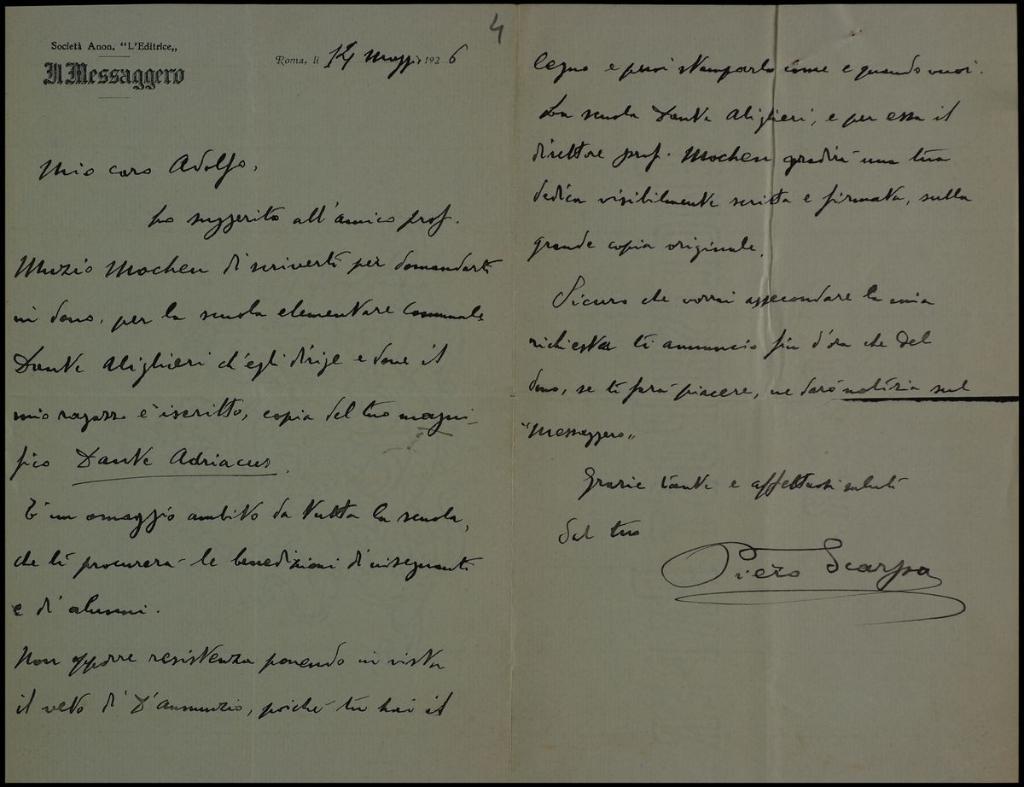 4
Società Anon. "L'Editrice„
Il Messaggero
Roma, li 14 maggio 1926
Mio caro Adolfo,
ho suggerito all'amico prof.
Muzio Mochen di scriverti per domandarti
in dono, per la scuola elementare Comunale
Dante Alighieri ch'egli dirige e dove il
mio ragazzo è iscritto, copia del tuo magni-
fico Dante Adriacus.
È un omaggio ambito da tutta la scuola,
che ti procurerà le benedizioni d'insegnanti
e di alunni.
Non opporre resistenza ponendo in vista
il veto di D'Annunzio, poiché tu hai il
legno e puoi stamparlo come e quando vuoi.
La scuola Dante Alighieri, e per essa il
direttore prof. Mochen gradirà una tua
dedica visibilmente scritta e firmata, sulla
grande copia originale.
Sicuro che vorrai assecondare la mia
richiesta ti annuncio fin d'ora che del
dono, se ti farà piacere, ne darò notizia sul
"Messaggero„
Grazie tante e affettuosi saluti
dal tuo
Piero Scarpa